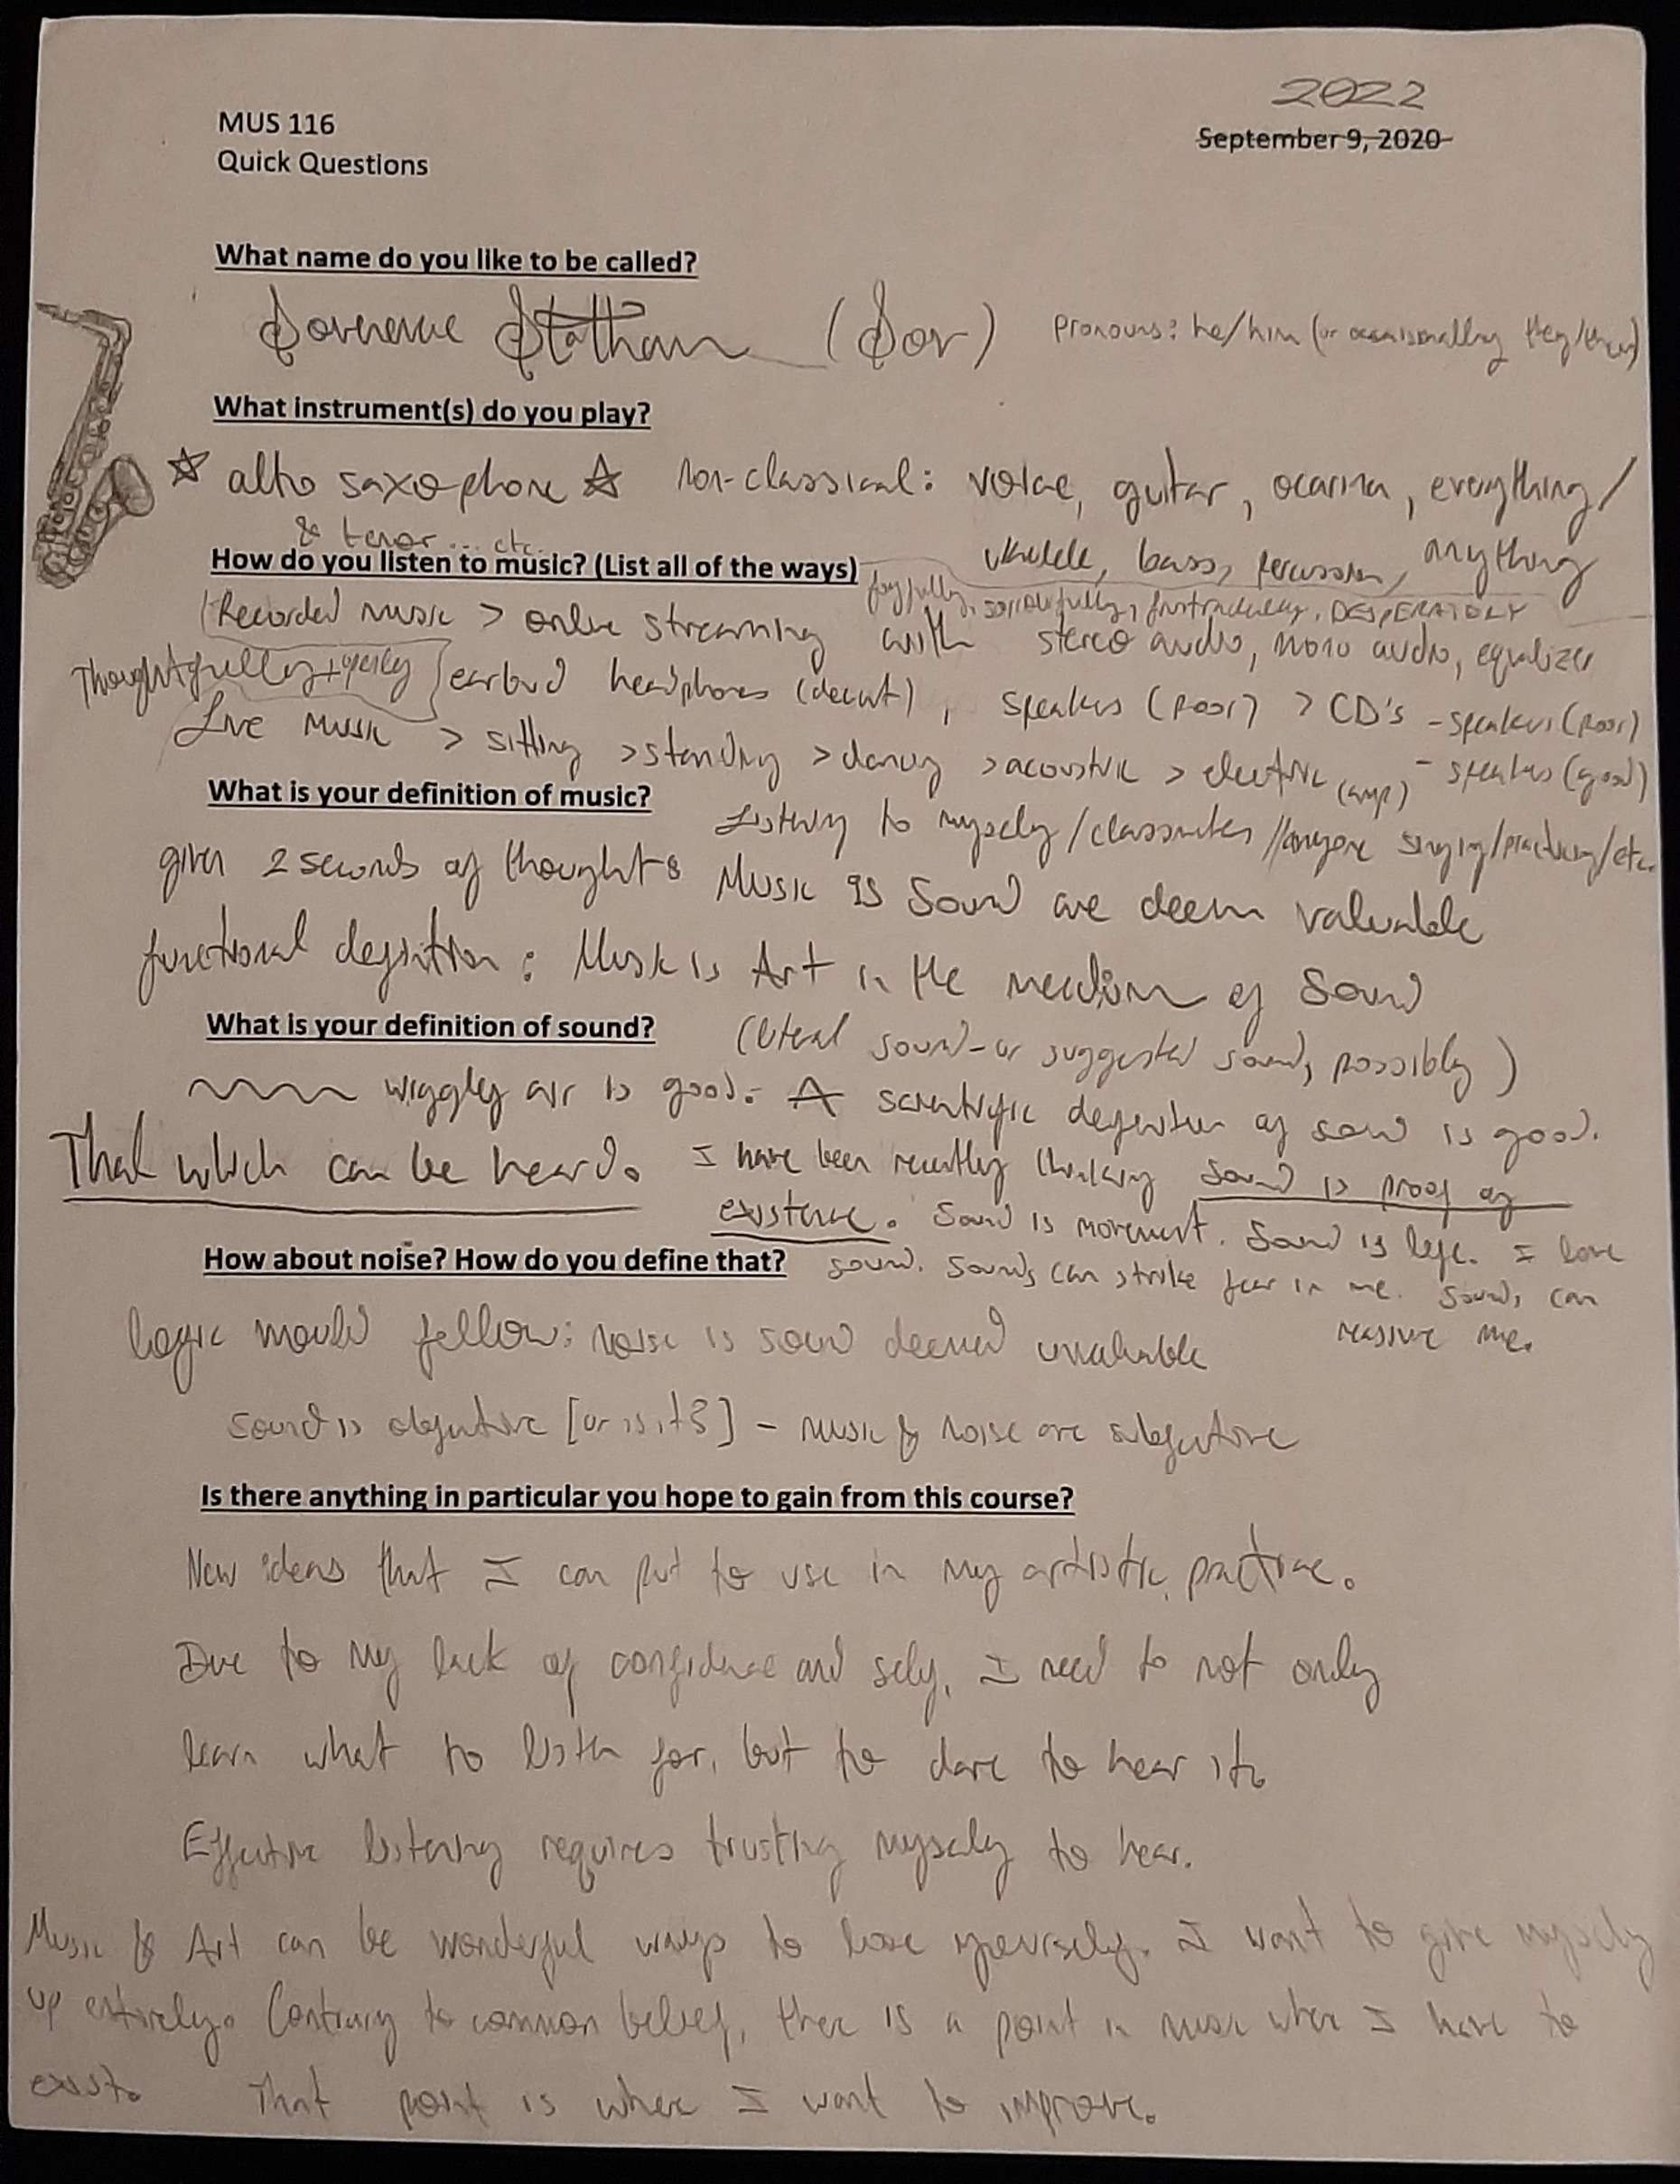 2022
MUS 116
September 9, 2020
Quick Questions
What name do you like to be called?
Statham (Sor) Pronouns: he/him (or occasionally they/them)
What instrument(s) do you play?
☆ alto saxophone ☆ non-classical: voice, guitar, ocarina, everything/
& tenor... etc. ukulele, bass, percussion, anything
How do you listen to music? (List all of the ways)
joyfully, sorrowfully, frustratedly, DESPERATELY
Recorded music > online streaming with stereo audio, mono audio, equalizer
Thoughtfully + openly earbud headphones (decent), speakers (poor) > CD's - speakers (poor)
Live music > sitting > standing > dancing > acoustic > electric (amp) - speakers (good)
What is your definition of music?
Listening to myself/classmates//anyone singing/practicing/etc.
given 2 seconds of thought: Music is Sound we deem valuable
functional definition: Music is Art in the medium of Sound
What is your definition of sound?
(literal sound - or suggested sound, possibly)
wiggly air is good. A scientific definition of sound is good.
That which can be heard. I have been recently thinking sound is proof of
existence. Sound is movement. Sound is life. I love
How about noise? How do you define that?
sound. Sounds can strike fear in me. Sounds can
reassure me.
logic would follow: noise is sound deemed unvaluable
Sound is objective [or is it?] - music & noise are subjective
Is there anything in particular you hope to gain from this course?
New ideas that I can put to use in my artistic practice.
Due to my lack of confidence and self, I need to not only
learn what to listen for, but to dare to hear it.
Effective listening requires trusting myself to hear.
Music & Art can be wonderful ways to lose yourself. I want to give myself
up entirely. Contrary to common belief, there is a point in music where I have to
exist. That point is where I want to improve.